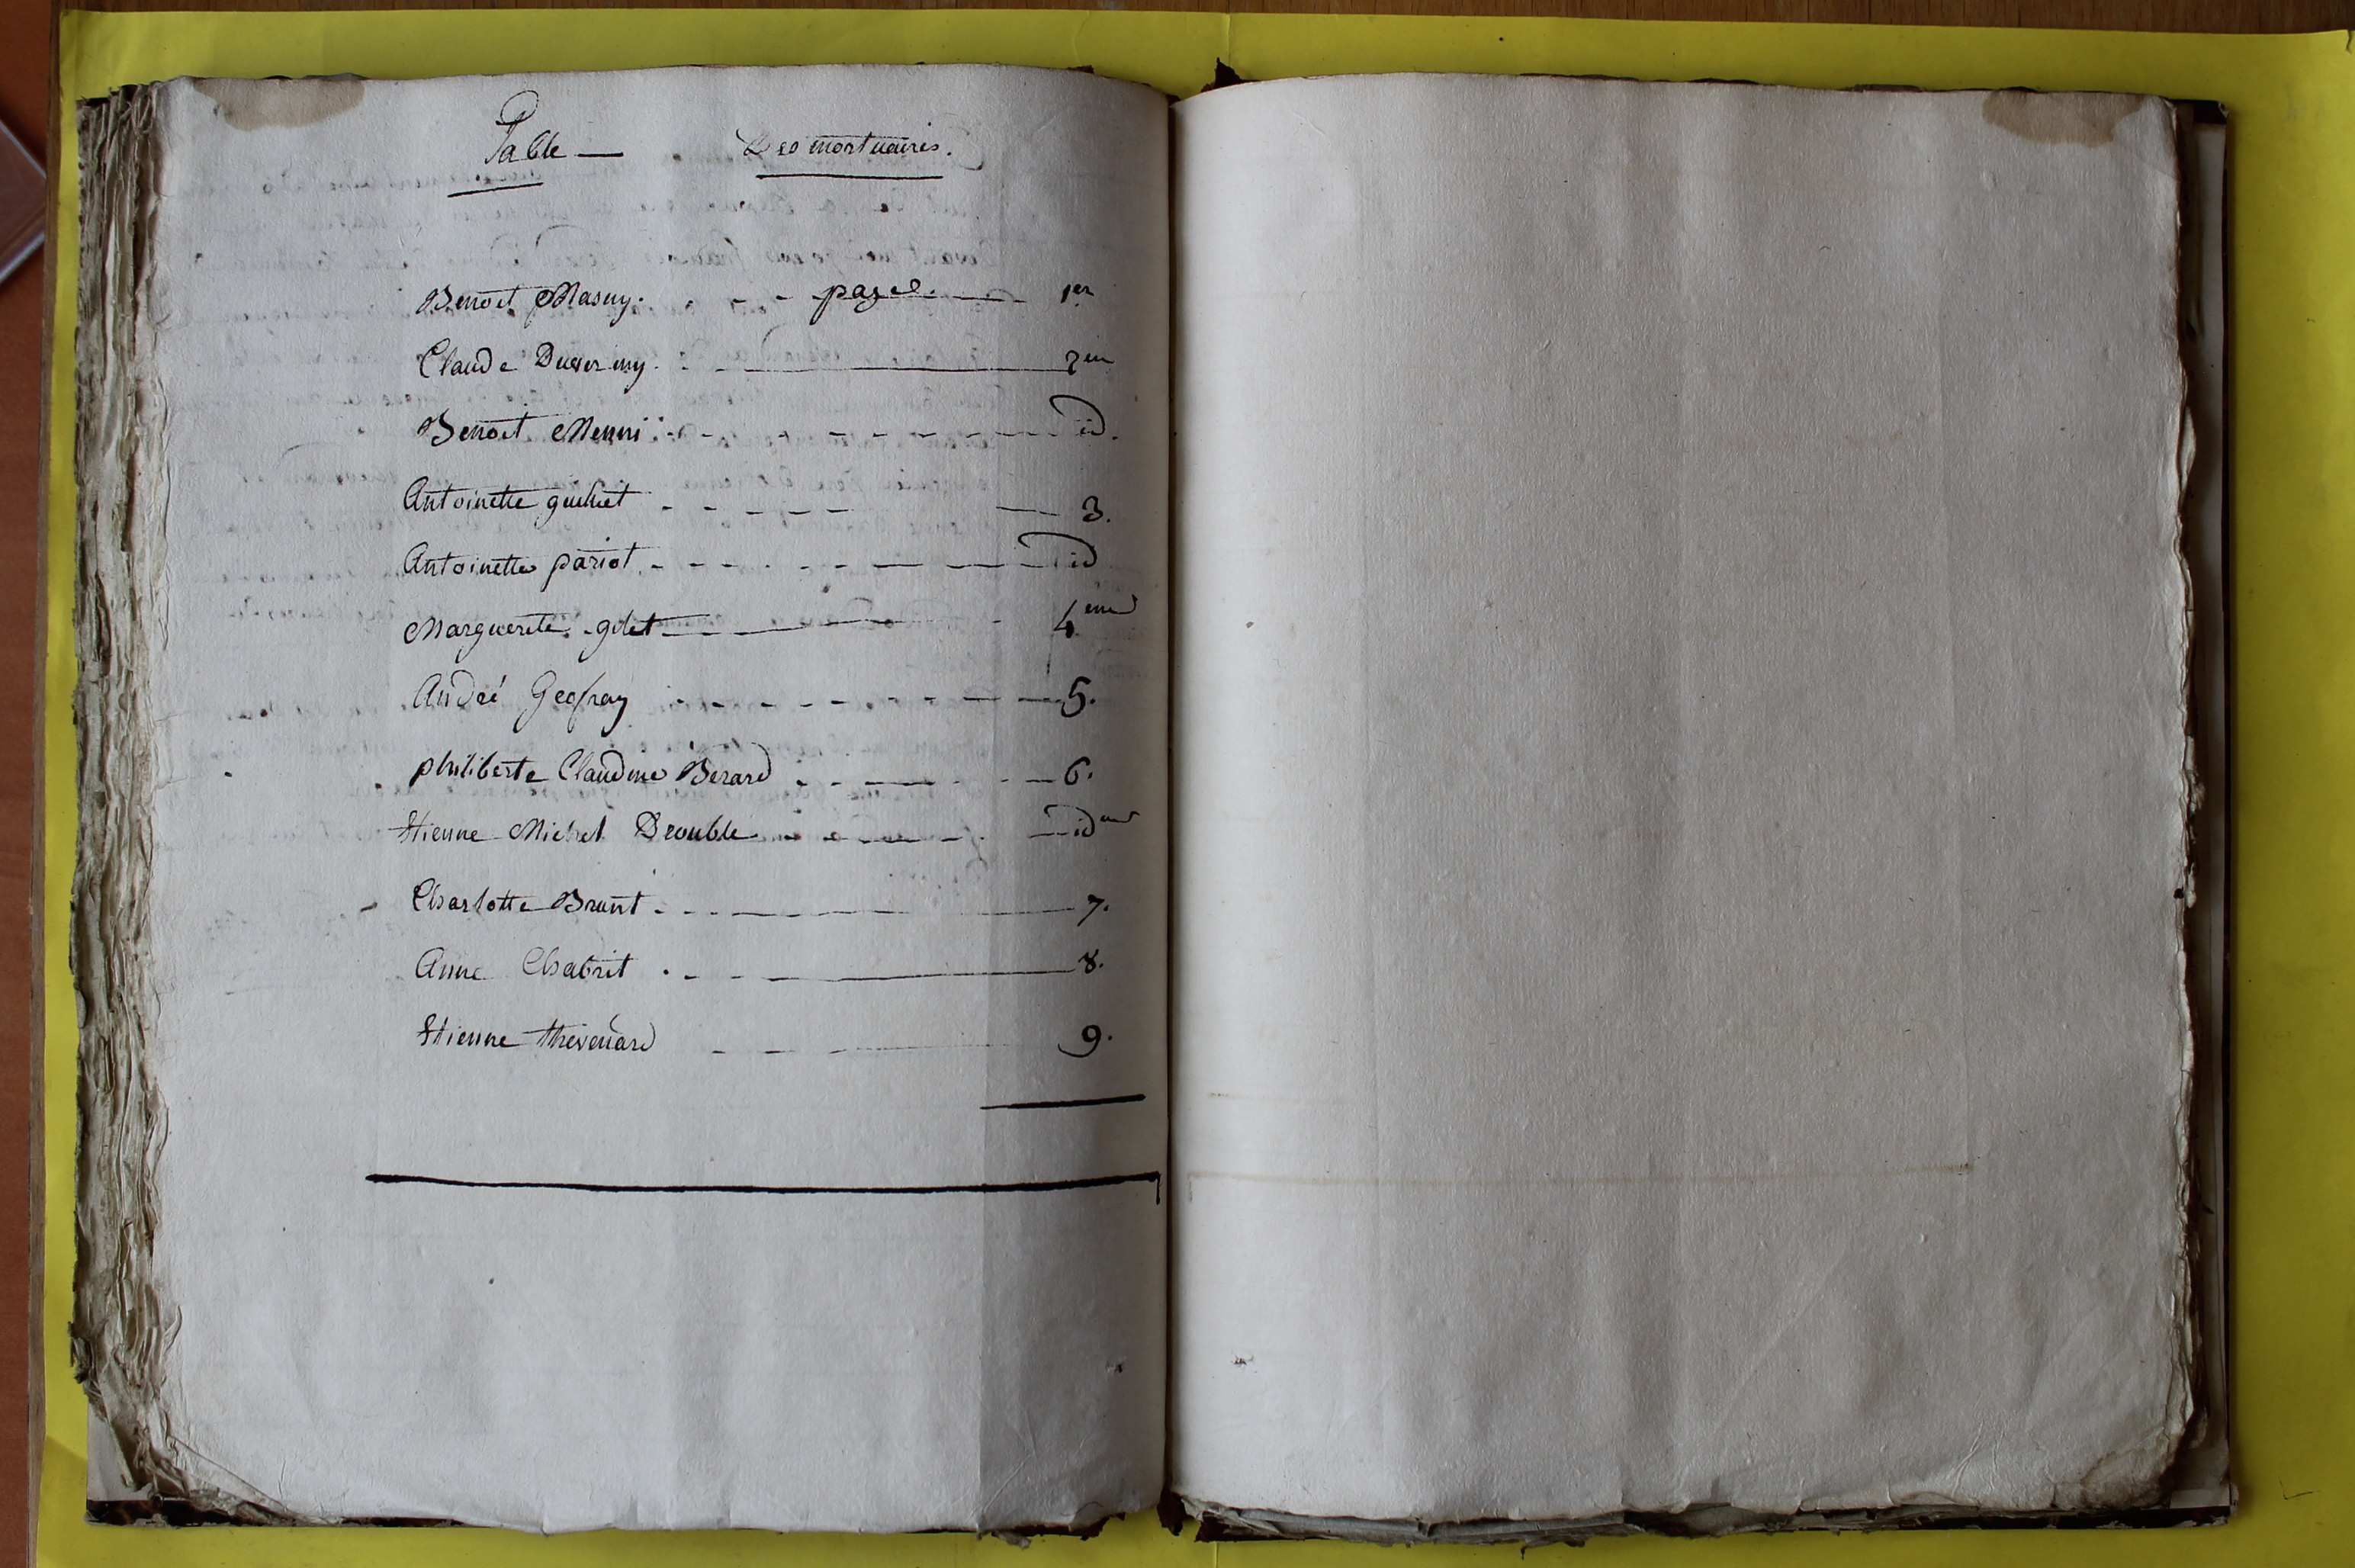 Table — Des mortuaires.
Benoit Masuy. page. 1er
Claude Duverny. 2em
Benoit Menni id.
Antoinette guichet 3.
Antoinette pariot id
Marguerite golet 4eme
André Geofray 5.
philiberte Claudine Berard 6.
Etienne Michel Drouble ideme
Charlotte Brunt 7.
Anne Chabrit 8.
Etienne thevenard 9.